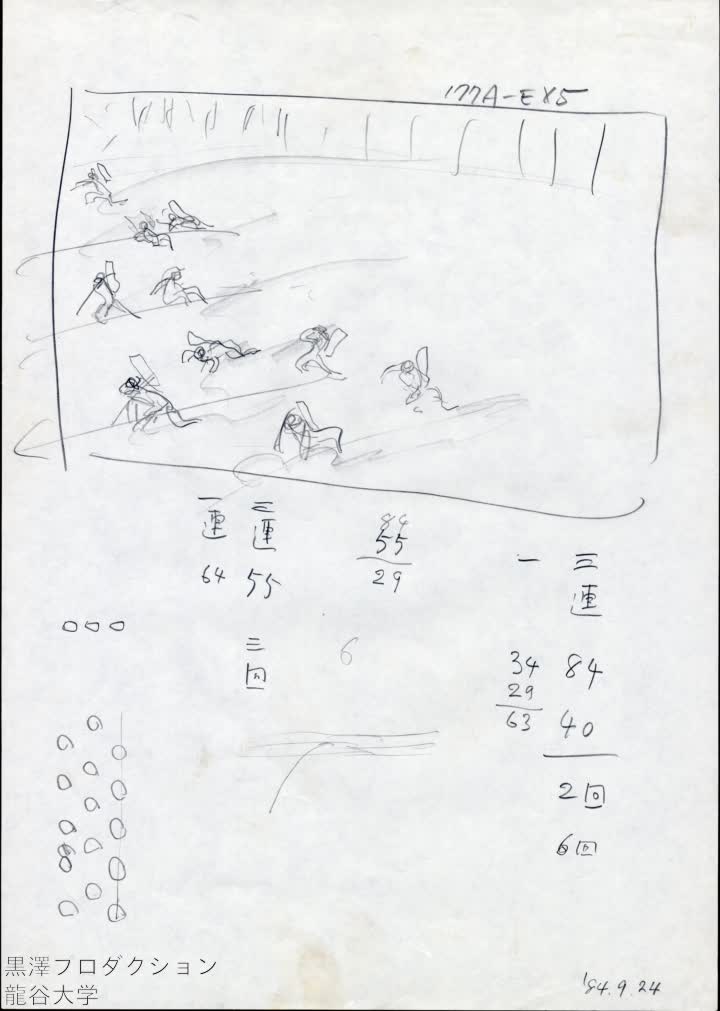 177A-EX5
一連
64
三連
55
三回
84
55
29
6
一
34
29
63
三連
84
40
2回
6回
黒澤プロダクション
龍谷大学
'84.9.24